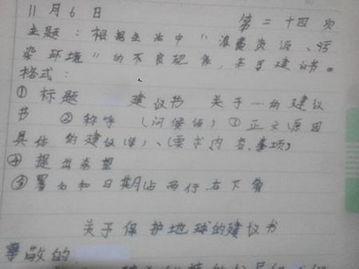 11月6日 第二十四次
主题：根据生活中"浪费资源、污
染环境"的不良现象，写建议书。
格式：
①标题 建议书 关于一份建议
书 ②称呼 (问候语) ③正文原因
具体的建议 (要求内容、事项)
④提出希望
⑤署名和日期占两行右下角
关于保护地球的建议书
敬的